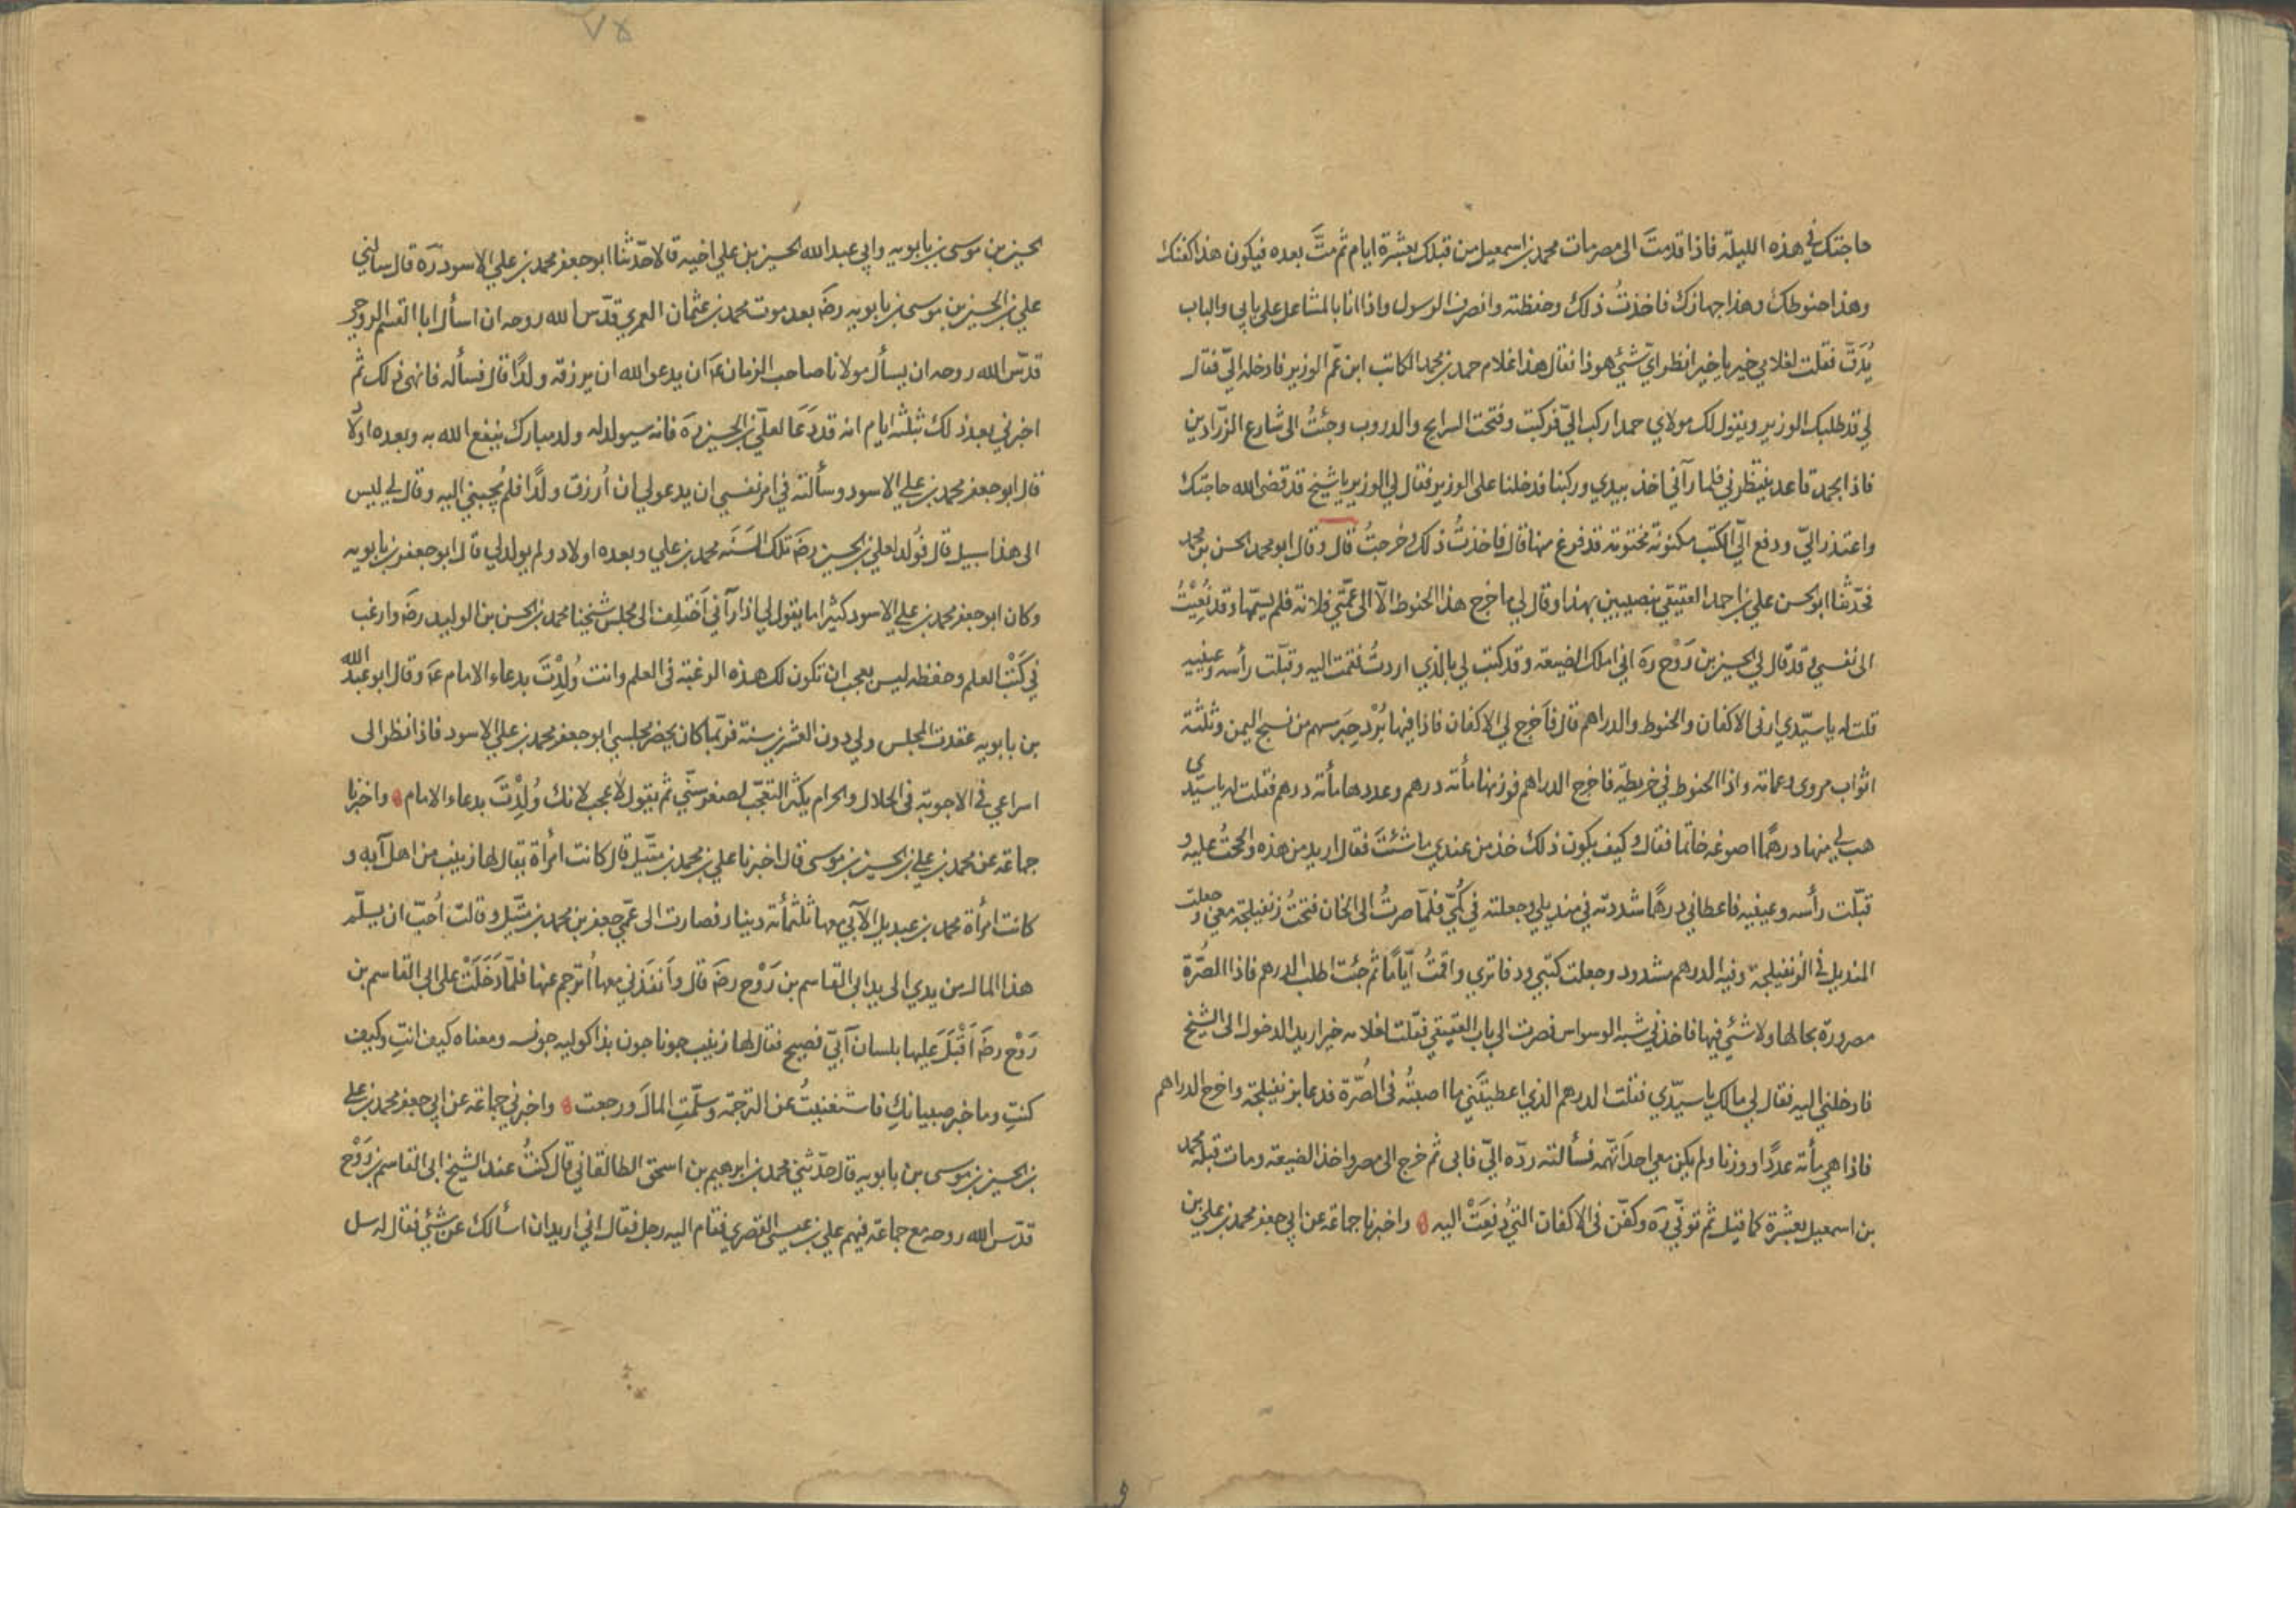 حاجتك في هذه الليلة فاذا قدمتَ الى مصر مات محمد بن اسمعيل من قبلك بعشرة ايام ثم متَّ بعده فيكون هذا كفنك
وهذا حنوطك وهذا جهازك فاخذتُ ذلك وحفظته وانصرف الرسول واذا انا بالمشاعل على بابي والباب
يُدَقّ فقلت لغلامي خير يا خير انظر ايّ شيئ هو ذا فقال هذا غلام حمد بن محمد الكاتب ابن عمّ الوزير فادخله اليّ فقال
لي قد طلبك الوزير ويقول لك مولاي حمد اركب اليّ فركبت وفتحت الدروب وجئتُ الى شارع الزرّادين
فاذا بحمد قاعد ينتظرني فلما رآني اخذ بيدي وركبنا فدخلنا على الوزير فقال لي الوزير يا شيخ قد قضى الله حاجتك
واعتذر اليّ ودفع اليّ الكتب مكتوبة مختومة قد فرغ منها قال فاخذتُ ذلك وخرجتُ قال وقال ابو محمد الحسن بن محمد
فحدّثنا ابو الحسن علي بن احمد العقيقي بنصيبين بهذا وقال لي ما خرج هذا الحنوط الّا الى عمّتي فلانة فلم يسمّها وقد نُعِيْتُ
الى نفسي وقد قال لي الحسين بن رَوْح ره اني املك الضيعة وقد كتب لي بالذي اردتُ فقمت اليه وقبّلت رأسه وعينيه
قلت له يا سيّدي ارنى الاكفان والحنوط والدراهم قال فأخرج لي الاكفان فاذا فيها بُرْد حِبَرة مسهم من نسج اليمن وثلثة
اثواب مروى وعمامة واذا الحنوط في خريطة فاخرج الدراهم فوزنها مأة درهم وعددها مأة درهم فقلت له يا سيّدي
هب لي منها درهمًا اصوغه خاتما فقال وكيف يكون ذلك خذ من عندي ما شئتَ فقال اريد من هذه والححتُ عليه و
قبّلت رأسه وعينيه فاعطاني درهمًا شددته في منديلي وجعلته في كُمّي فلمّا صرتُ الى الخان فتحتُ زنفيلجة معي وجعلت
المنديل في الزنفيلجة وفيه الدرهم مشدود وجعلت كتبي ودفاتري واقمتُ ايّامًا ثم جئت اطلب الدرهم فاذا الصُرّة
مصرورة بحالها ولا شيئ فيها فاخذني شبه الوسواس فصرت الى باب العقيقي فقلت لغلامه خير اريد الدخول الى الشيخ
فادخلني اليه فقال لي مالك يا سيّدي فقلت الدرهم الذي اعطيتَني ما اصبتُه فى الصُرّة فدعا بزنفيلجة واخرج الدراهم
فاذا هي مأة عددًا ووزنا ولم يكن معي احد اتّهمه فسألته ردّه اليّ فابى ثم خرج الى مصر واخذ الضيعة ومات قبله محمد
بن اسمعيل بعشرة كما قيل ثم توفّي ره وكفّن فى الاكفان التي دُفِعَتْ اليه واخبرنا جماعة عن ابي جعفر محمد بن علي بن
٧٥
الحسين بن موسى بن بابويه وابي عبد الله الحسين بن علي اخيه قالا حدّثنا ابو جعفر محمد بن علي الاسود ره قال سالني
علي بن الحسين بن موسى بن بابويه رضَ بعد موت محمد بن عثمان العمري قدّس الله روحه ان اسأل ابا القسم الروحي
قدّس الله روحه ان يسأل مولانا صاحب الزمان عَ ان يدعو الله ان يرزقه ولدًا قال فسأله فانهى ذلك ثم
اخبرني بعد ذلك بثلثة ايام انه قد دَعَا لعليّ بن الحسين ره فانه سيولد له ولد مبارك ينفع الله به وبعده اولاد
قال ابو جعفر محمد بن علي الاسود وسألته في امر نفسي ان يدعو لي ان اُرزق ولدًا فلم يُجِبني اليه وقال لي ليس
الى هذا سبيل قال فوُلد لعلي بن الحسين رضَ تلك السَنَه محمد بن علي وبعده اولاد ولم يولد لي قال ابو جعفر بن بابويه
وكان ابو جعفر محمد بن علي الاسود كثيرا ما يقول لي اذا رآني اَختلف الى مجلس شيخنا محمد بن الحسن بن الوليد رضَ وارغب
في كَتْب العلم وحفظه ليس بعجب ان تكون لك هذه الرغبة فى العلم وانت وُلِدْتَ بدعاء الامام عَ وقال ابو عبد الله
بن بابويه عقدت المجلس ولي دون العشرين سنة فربّما كان يحضر مجلسي ابو جعفر محمد بن علي الاسود فاذا نظر الى
اسراعي في الاجوبة فى الحلال والحرام يكثر التعجّب لصغر سنّي ثم يقول لا عجب لانك وُلِدْتَ بدعاء الامام واخبرنا
جماعة عن محمد بن علي بن الحسين بن موسى قال اخبرنا علي بن محمد بن متّيل قال كانت امرأة يقال لها زينب من اهل آبه و
كانت امرأة محمد بن عبديل الآبي معها ثلثمأة دينار فصارت الى عمّي جعفر بن محمد بن متّيل وقالت اُحبّ ان يسلّم
هذا المال من يدي الى يد ابى القاسم بن رَوْح رضَ قال واَنفَذَني معها اُترجم عنها فلمّا دَخَلَتْ على ابى القاسم بن
رَوْح رضَ اَقْبَلَ عليها بلسان آبيّ فصيح فقال لها زينب جونا جون بذا كوليه جونسه ومعناه كيف انتِ وكيف
كنتِ وما خبر صبيانكِ فاستغنيتُ عن الترجمة وسلّمتِ المالَ ورجعت واخبرني جماعة عن ابي جعفر محمد بن علي
بن الحسين بن موسى بن بابويه قال حدّثني محمد بن ابرهيم بن اسحق الطالقاني قال كنتُ عند الشيخ ابى القاسم بن رَوْح
قدّس الله روحه مع جماعة فيهم علي بن عيسى القصري فقام اليه رجل فقال اني اريد ان اسألك عن شيئ فقال له سل